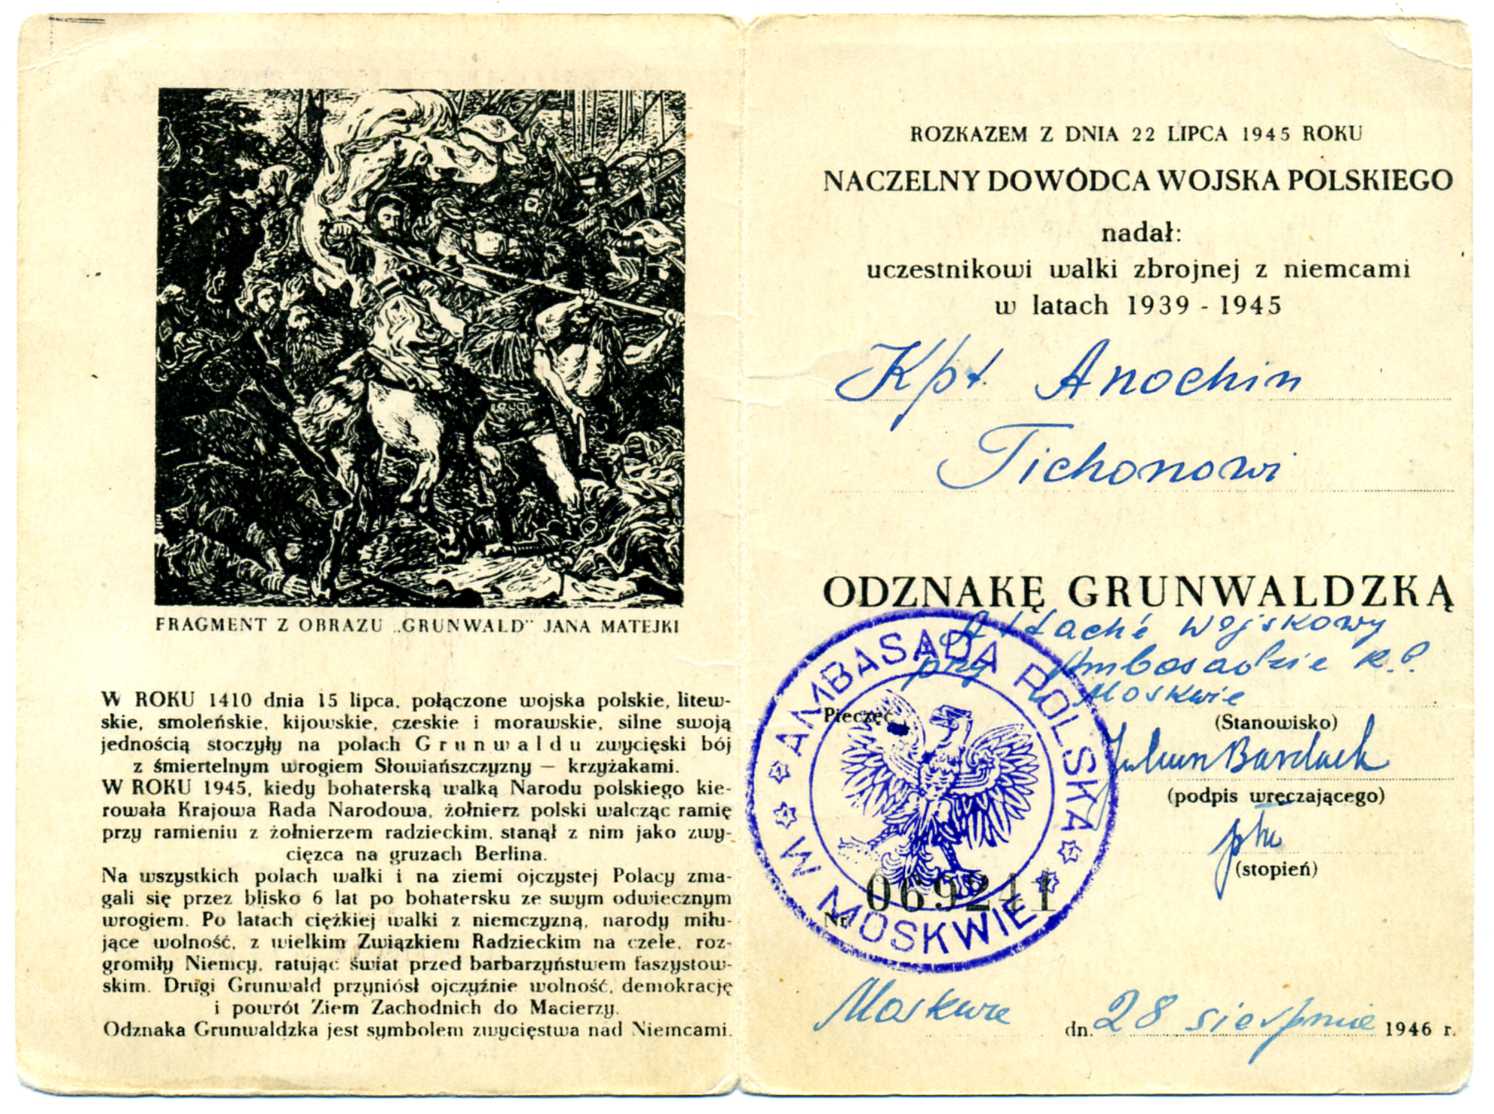 FRAGMENT Z OBRAZU „GRUNWALD" JANA MATEJKI
W ROKU 1410 dnia 15 lipca, połączone wojska polskie, litew-
skie, smoleńskie, kijowskie, czeskie i morawskie, silne swoją
jednością stoczyły na polach Grunwaldu zwycięski bój
z śmiertelnym wrogiem Słowiańszczyzny — krzyżakami.
W ROKU 1945, kiedy bohaterską walką Narodu polskiego kie-
rowała Krajowa Rada Narodowa, żołnierz polski walcząc ramię
przy ramieniu z żołnierzem radzieckim, stanął z nim jako zwy-
cięzca na gruzach Berlina.
Na wszystkich polach walki i na ziemi ojczystej Polacy zma-
gali się przez blisko 6 lat po bohatersku ze swym odwiecznym
wrogiem. Po latach ciężkiej walki z niemczyzną, narody miłu-
jące wolność, z wielkim Związkiem Radzieckim na czele, roz-
gromiły Niemcy, ratując świat przed barbarzyństwem faszystow-
skim. Drugi Grunwald przyniósł ojczyźnie wolność, demokrację
i powrót Ziem Zachodnich do Macierzy.
Odznaka Grunwaldzka jest symbolem zwycięstwa nad Niemcami.
ROZKAZEM Z DNIA 22 LIPCA 1945 ROKU
NACZELNY DOWÓDCA WOJSKA POLSKIEGO
nadał:
uczestnikowi walki zbrojnej z niemcami
w latach 1939 - 1945
Kpt. Anochin
Tichonowi
ODZNAKĘ GRUNWALDZKĄ
Attaché Wojskowy
przy Ambasadzie R.P.
w Moskwie
Pieczęć
(Stanowisko)
AMBASADA POLSKA
W MOSKWIE
Julian Bardach
(podpis wręczającego)
(stopień)
Nr 069241
Moskwa dn. 28 sierpnia 1946 r.